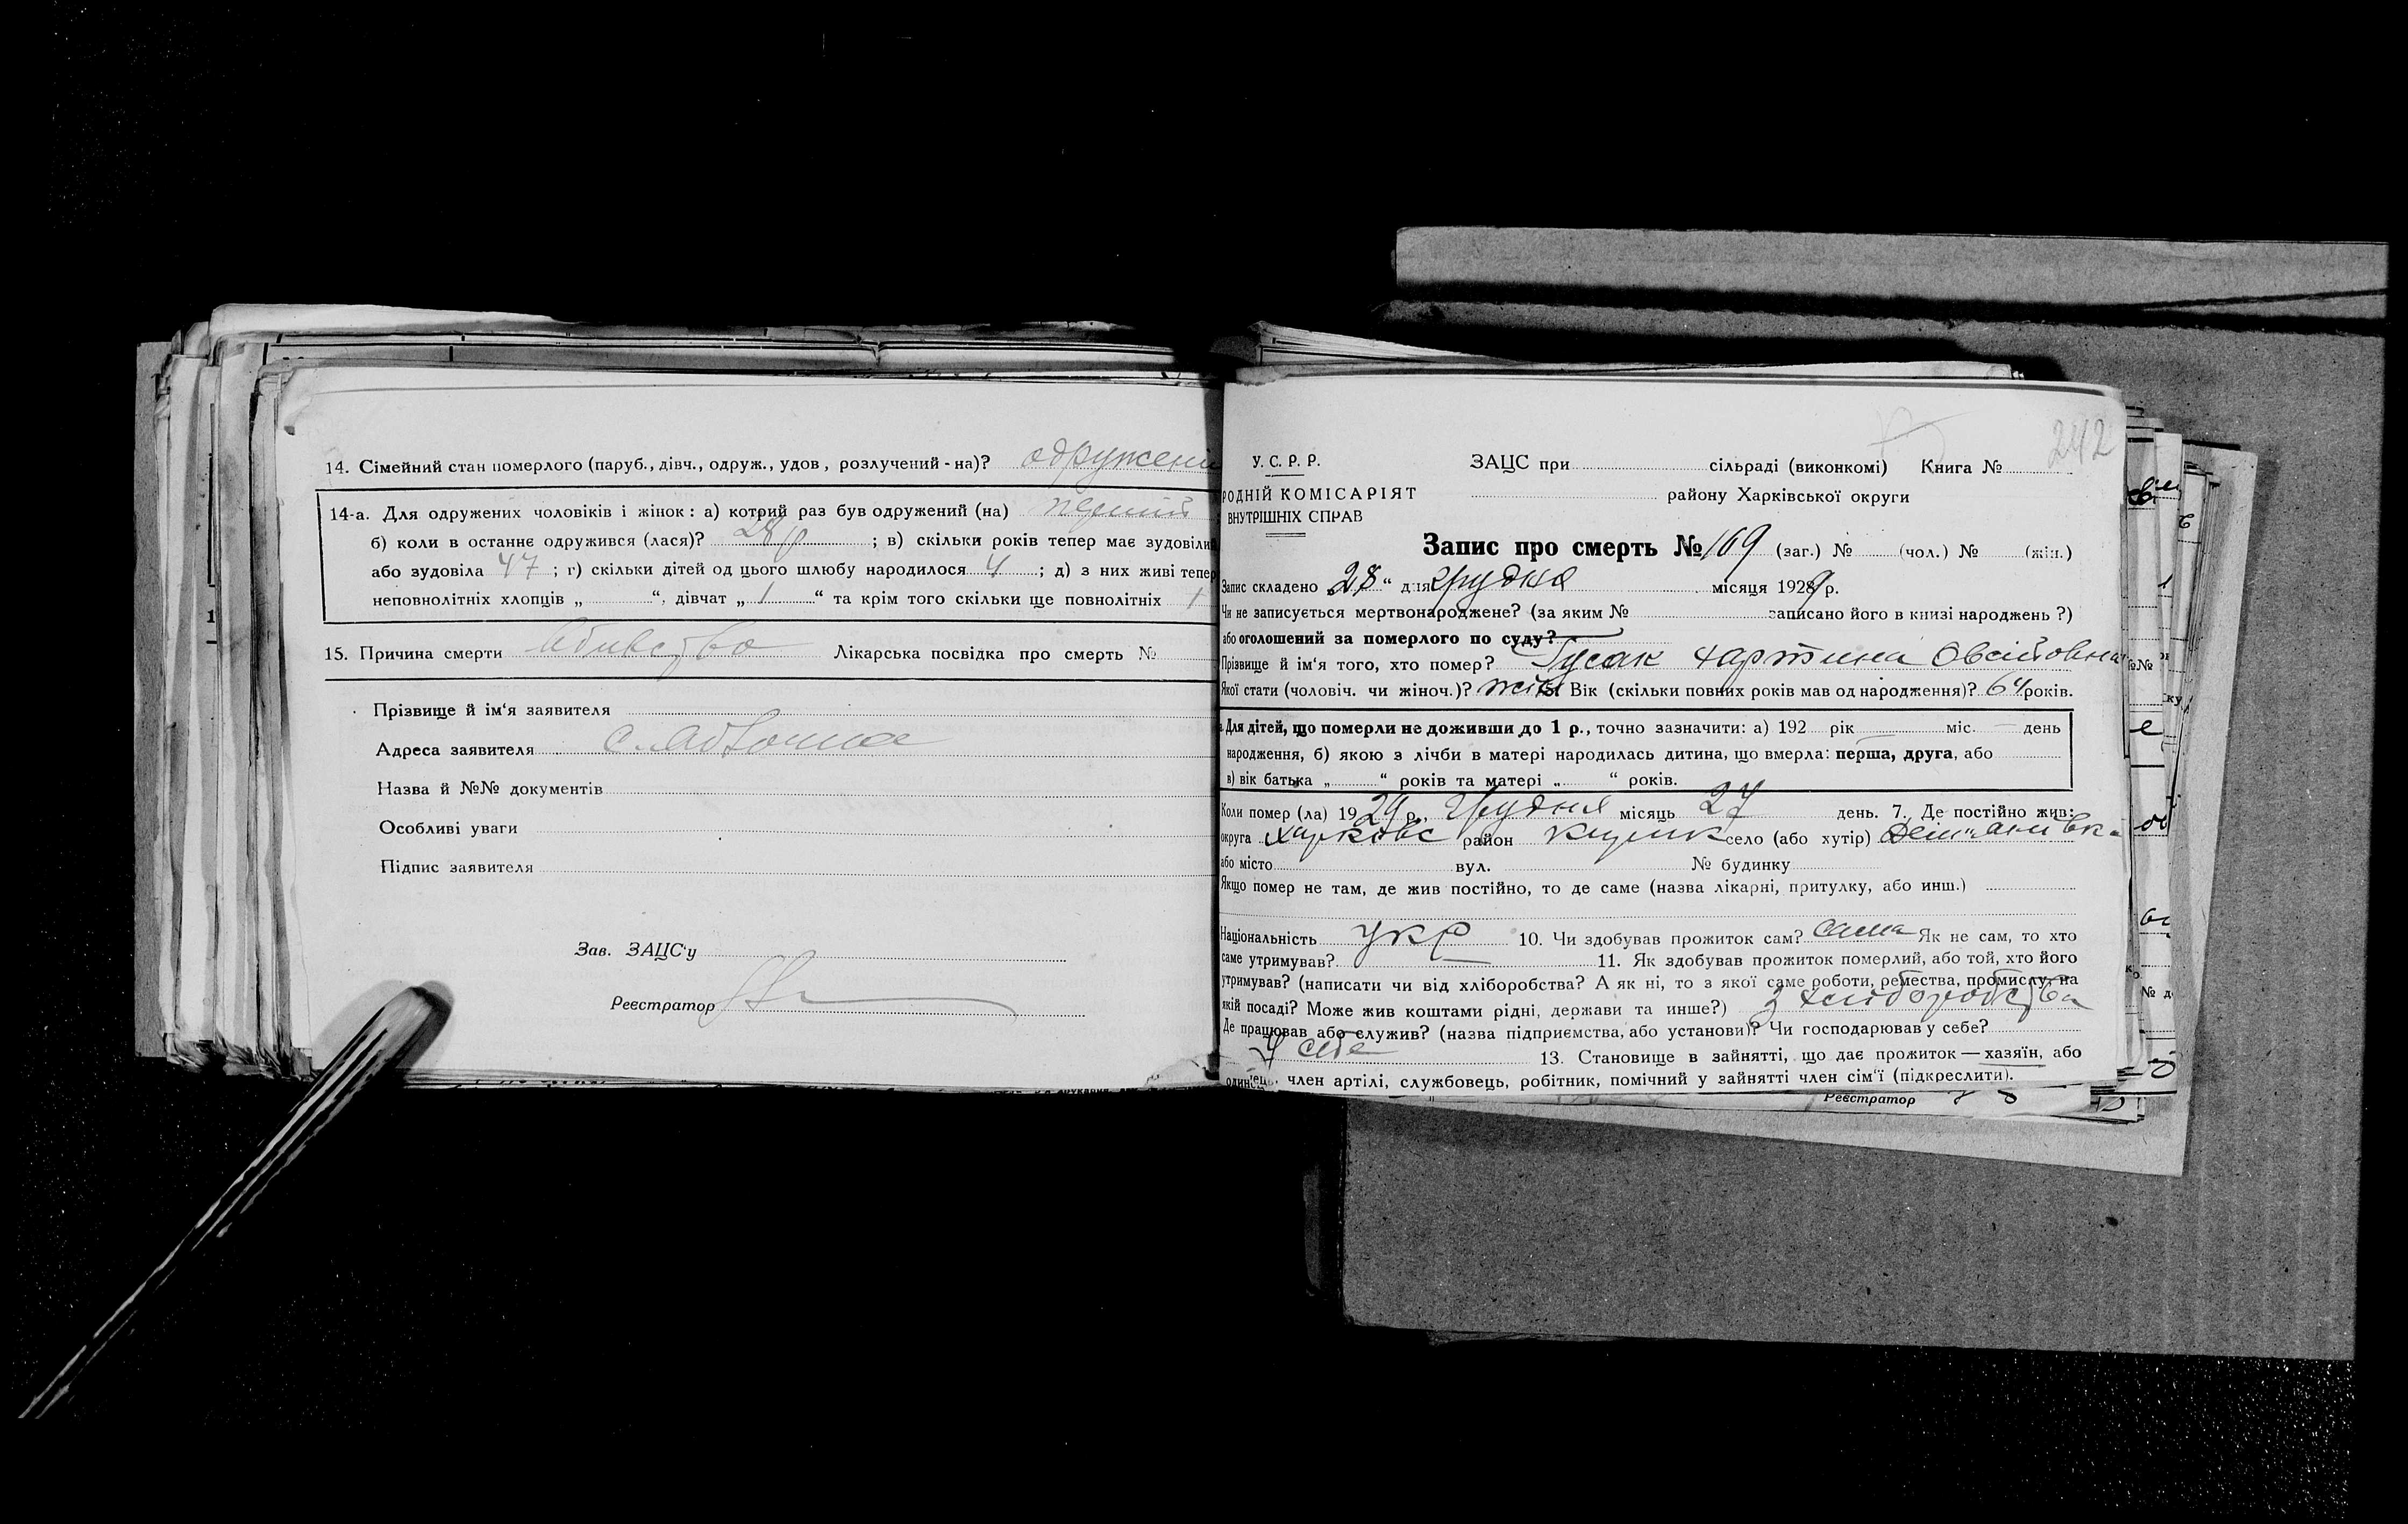 14. Сімейний стан померлого (паруб., дівч., одруж., удов, розлучений-на)? одружений
14-а. Для одружених чоловіків і жінок: а) котрий раз був одружений (на) перший
б) коли в останнє одружився (лася)? 28 р ; в) скільки років тепер має зудовілий
або зудовіла 47 ; г) скільки дітей од цього шлюбу народилося 4 ; д) з них живі тепер
неповнолітніх хлопців „ “, дівчат „ 1 “ та крім того скільки ще повнолітніх 1
15. Причина смерти Убивство Лікарська посвідка про смерть №
Прізвище й ім‘я заявителя
Адреса заявителя
Назва й №№ документів
Особливі уваги
Підпис заявителя
Зав. ЗАЦС‘у
Реєстратор
242
У. С. Р. Р. ЗАЦС при сільраді (виконкомі) Книга №
РОДНІЙ КОМІСАРІЯТ району Харківської округи
ВНУТРІШНІХ СПРАВ
Запис про смерть № 169 (заг.) № (чол.) № (жін.)
Запис складено „28“ дня грудня місяця 1929 р.
Чи не записується мертвонароджене? (за яким № записано його в книзі народжень ?)
або оголошений за померлого по суду?
Прізвище й ім‘я того, хто помер? Гусак Хартина Овсіївовна
Якої стати (чоловіч. чи жіноч.)? жін Вік (скільки повних років мав од народження)? 64 років.
Для дітей, що померли не доживши до 1 р., точно зазначити: а) 192 рік міс. день
народження, б) якою з лічби в матері народилась дитина, що вмерла: перша, друга, або
в) вік батька „ “ років та матері „ “ років.
Коли помер (ла) 1929 р., Грудня місяць 27 день. 7. Де постійно жив:
округа Харківс район село (або хутір)
або місто вул. № будинку
Якщо помер не там, де жив постійно, то де саме (назва лікарні, притулку, або инш.)
Національність укр 10. Чи здобував прожиток сам? сама Як не сам, то хто
саме утримував? 11. Як здобував прожиток померлий, або той, хто його
утримував? (написати чи від хліборобства? А як ні, то з якої саме роботи, ремества, промислу, на
якій посаді? Може жив коштами рідні, держави та инше?) з хліборобства
Де працював або служив? (назва підприємства, або установи)? Чи господарював у себе?
У себе 13. Становище в зайнятті, що дає прожиток — хазяїн, або
одинець, член артілі, службовець, робітник, помічний у зайнятті член сім‘ї (підкреслити).
Реєстратор